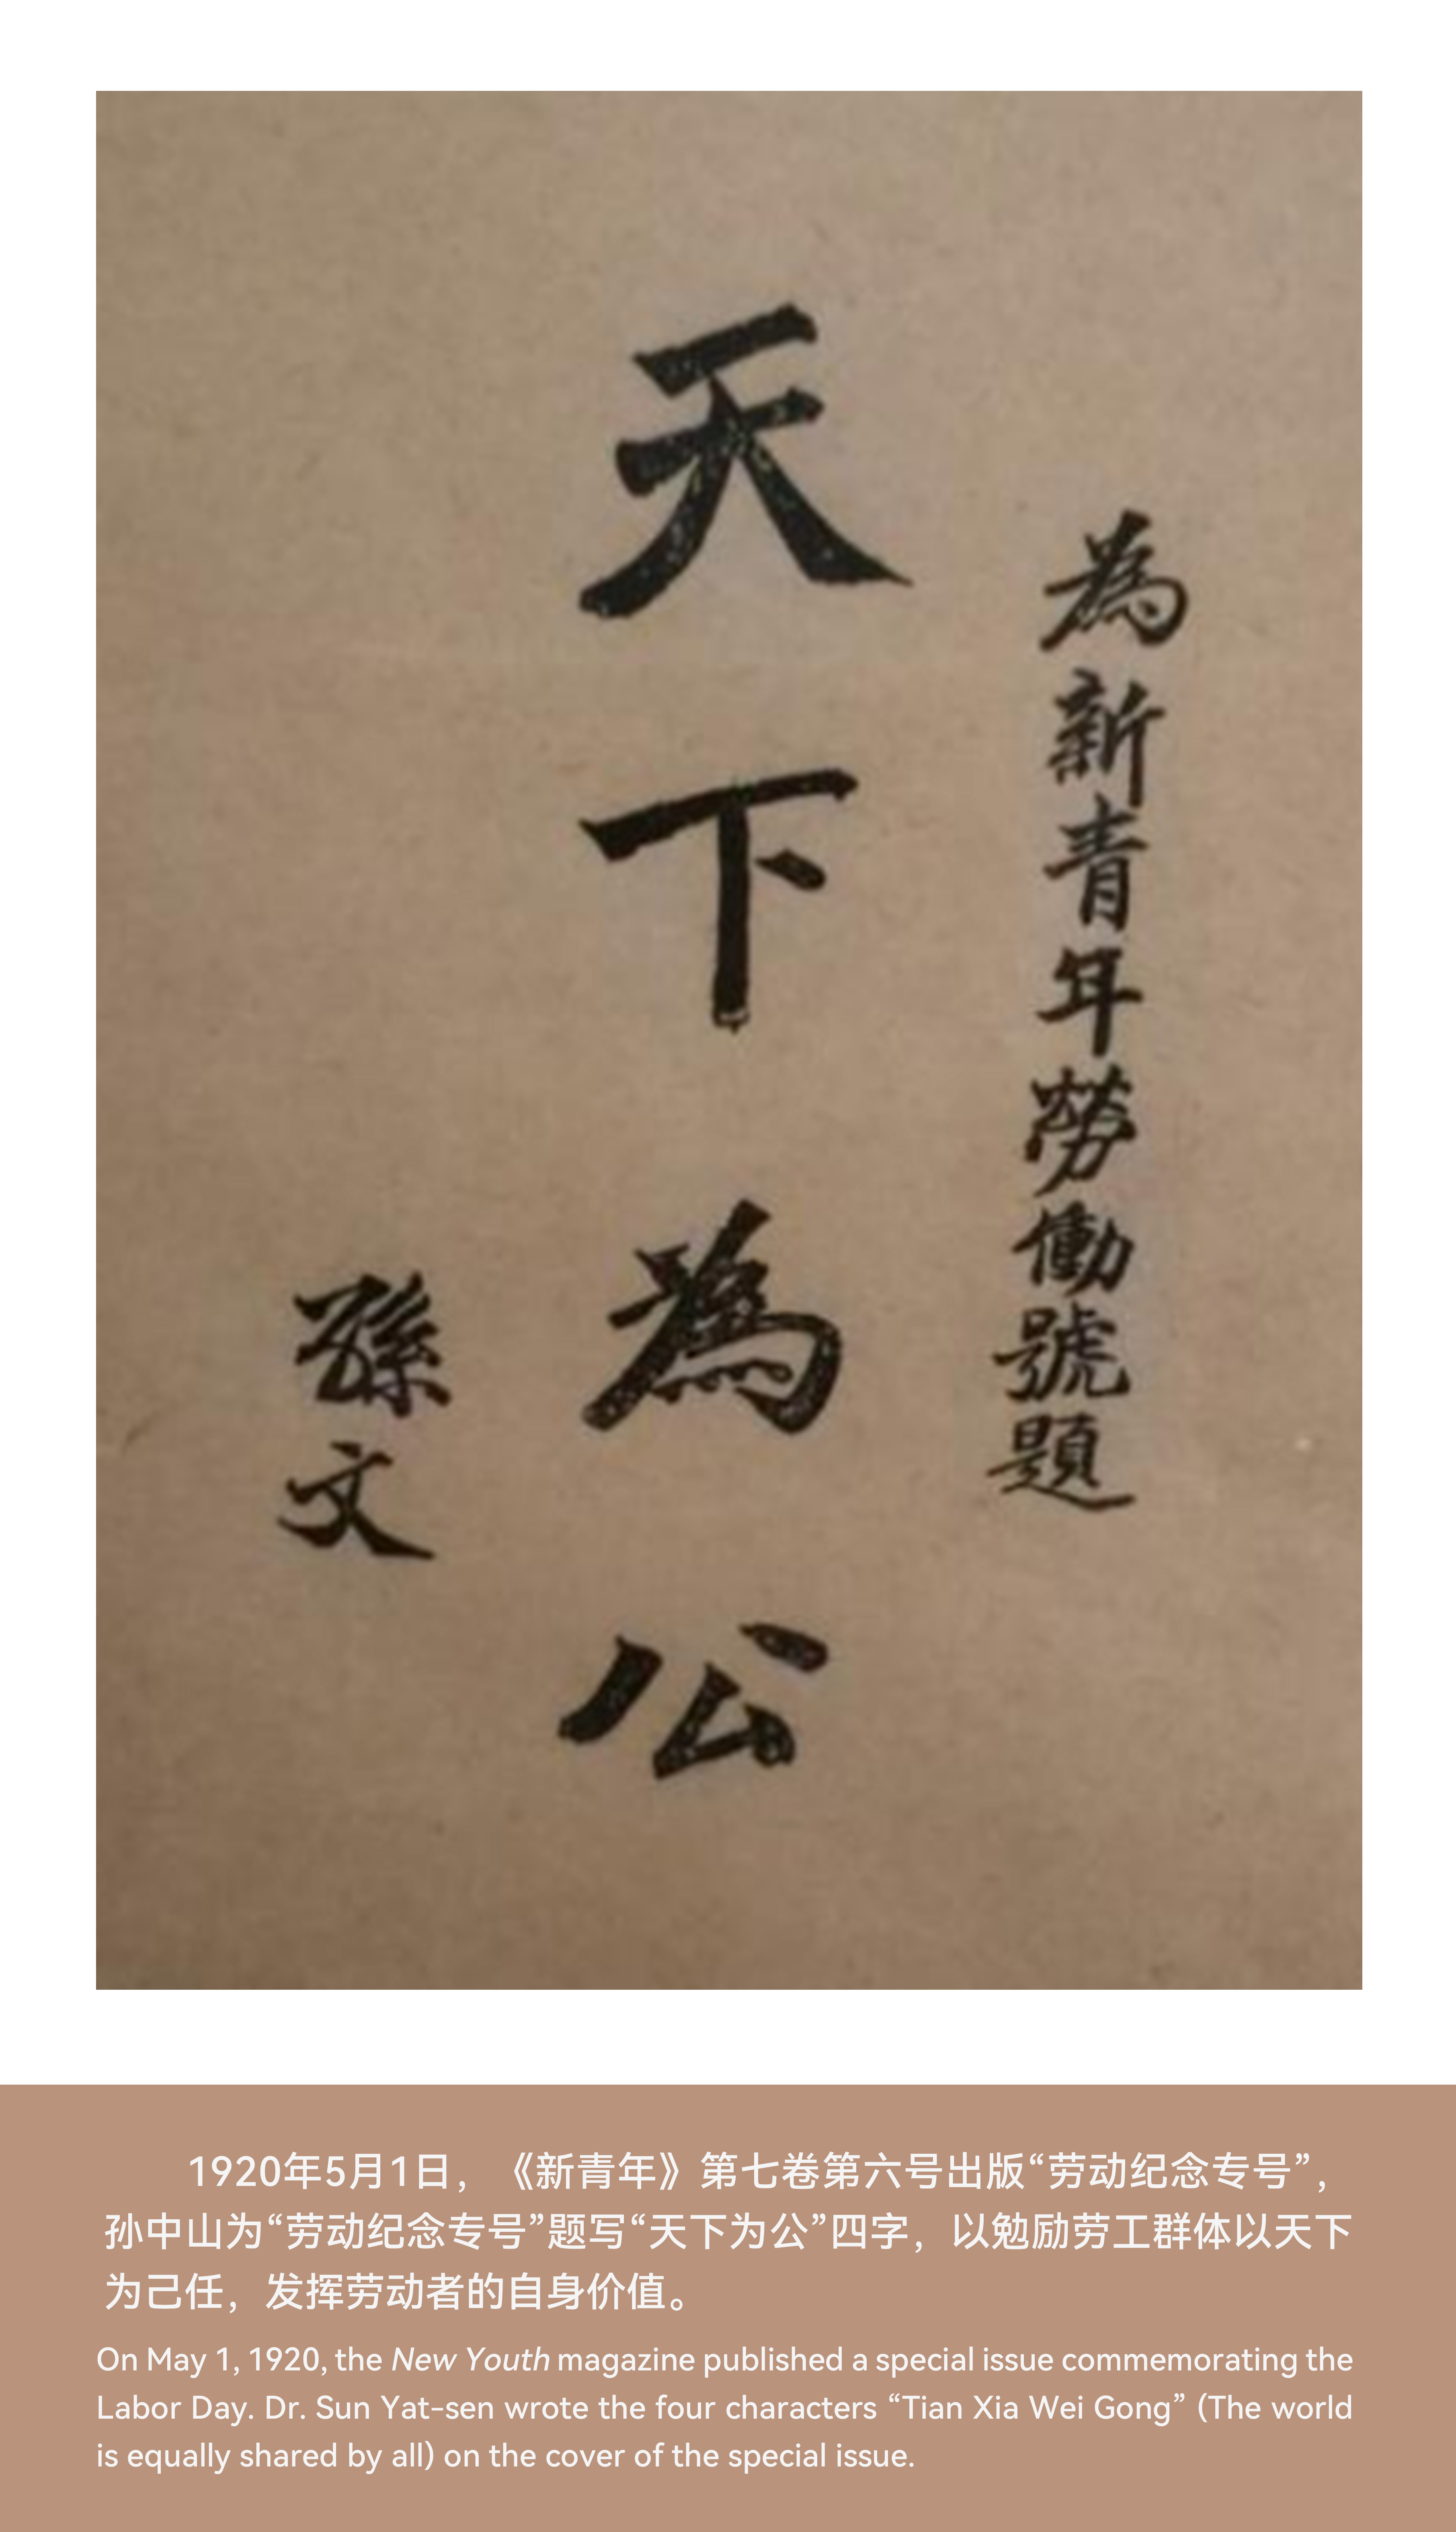 為新青年勞働號題
天下為公
孫文
1920年5月1日，《新青年》第七卷第六号出版“劳动纪念专号”，
孙中山为“劳动纪念专号”题写“天下为公”四字，以勉励劳工群体以天下
为己任，发挥劳动者的自身价值。
On May 1, 1920, the New Youth magazine published a special issue commemorating the
Labor Day. Dr. Sun Yat-sen wrote the four characters “Tian Xia Wei Gong” (The world
is equally shared by all) on the cover of the special issue.